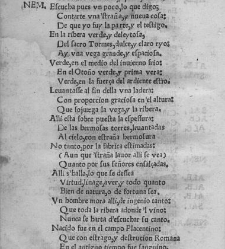 NEM. Escucha pues vn poco, lo que digo;
Contarte vna estraña, y nueua cosa;
De que yo fuy la parte, y el testigo.
En la ribera verde, y deleytosa,
Del sacro Tormes, dulce, y claro rio;
Ay vna vega grande, y espaciosa,
Verde, en el medio del inuierno frio;
En el Otoño verde, y prima vera;
Verde, en la fuerça del ardiente estio.
Leuantasse al fin della vna ladera;
Con proporcion graciosa en el altura;
Que sojuzga la vega, y la ribera.
Alli està sobre puesta la espessura;
De las hermosas torres, leuantadas
Al cielo, con estraña hermosura
No tanto, por la fabrica estimadas;
(Aun que estraña lauor alli se vea)
Quanto por sus señores ensalçadas,
Alli se halla, lo que se dessea
Virtud, linage, auer, y todo quanto
Bien de natura, o de fortuna sea,
Vn hombre mora alli, de ingenio tanto;
Que toda la ribera adonde el vino;
Nunca se harta d'escuchar su canto.
Nacido fue en el campo Placentino;
Que con estrago, y destruycion Romana
En el antiguo tiempo fue sanguino